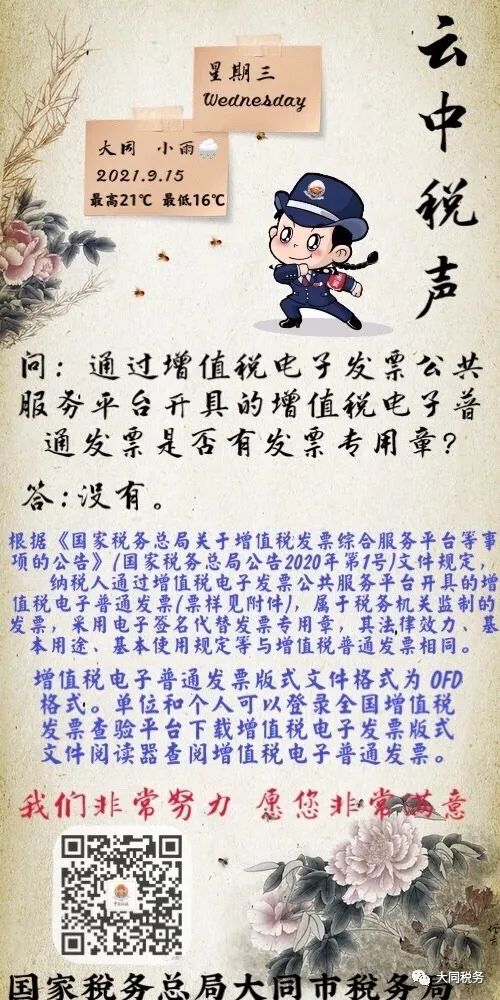 云中税声
星期三
Wednesday
大同 小雨
2021.9.15
最高21℃ 最低16℃
问：通过增值税电子发票公共
服务平台开具的增值税电子普
通发票是否有发票专用章？
答：没有。
根据《国家税务总局关于增值税发票综合服务平台等事
项的公告》(国家税务总局公告2020年第1号)文件规定，
纳税人通过增值税电子发票公共服务平台开具的增
值税电子普通发票(票样见附件)，属于税务机关监制的
发票，采用电子签名代替发票专用章，其法律效力、基
本用途、基本使用规定等与增值税普通发票相同。
增值税电子普通发票版式文件格式为OFD
格式。单位和个人可以登录全国增值税
发票查验平台下载增值税电子发票版式
文件阅读器查阅增值税电子普通发票。
我们非常努力 愿您非常满意
国家税务总局大同市税务
大同税务